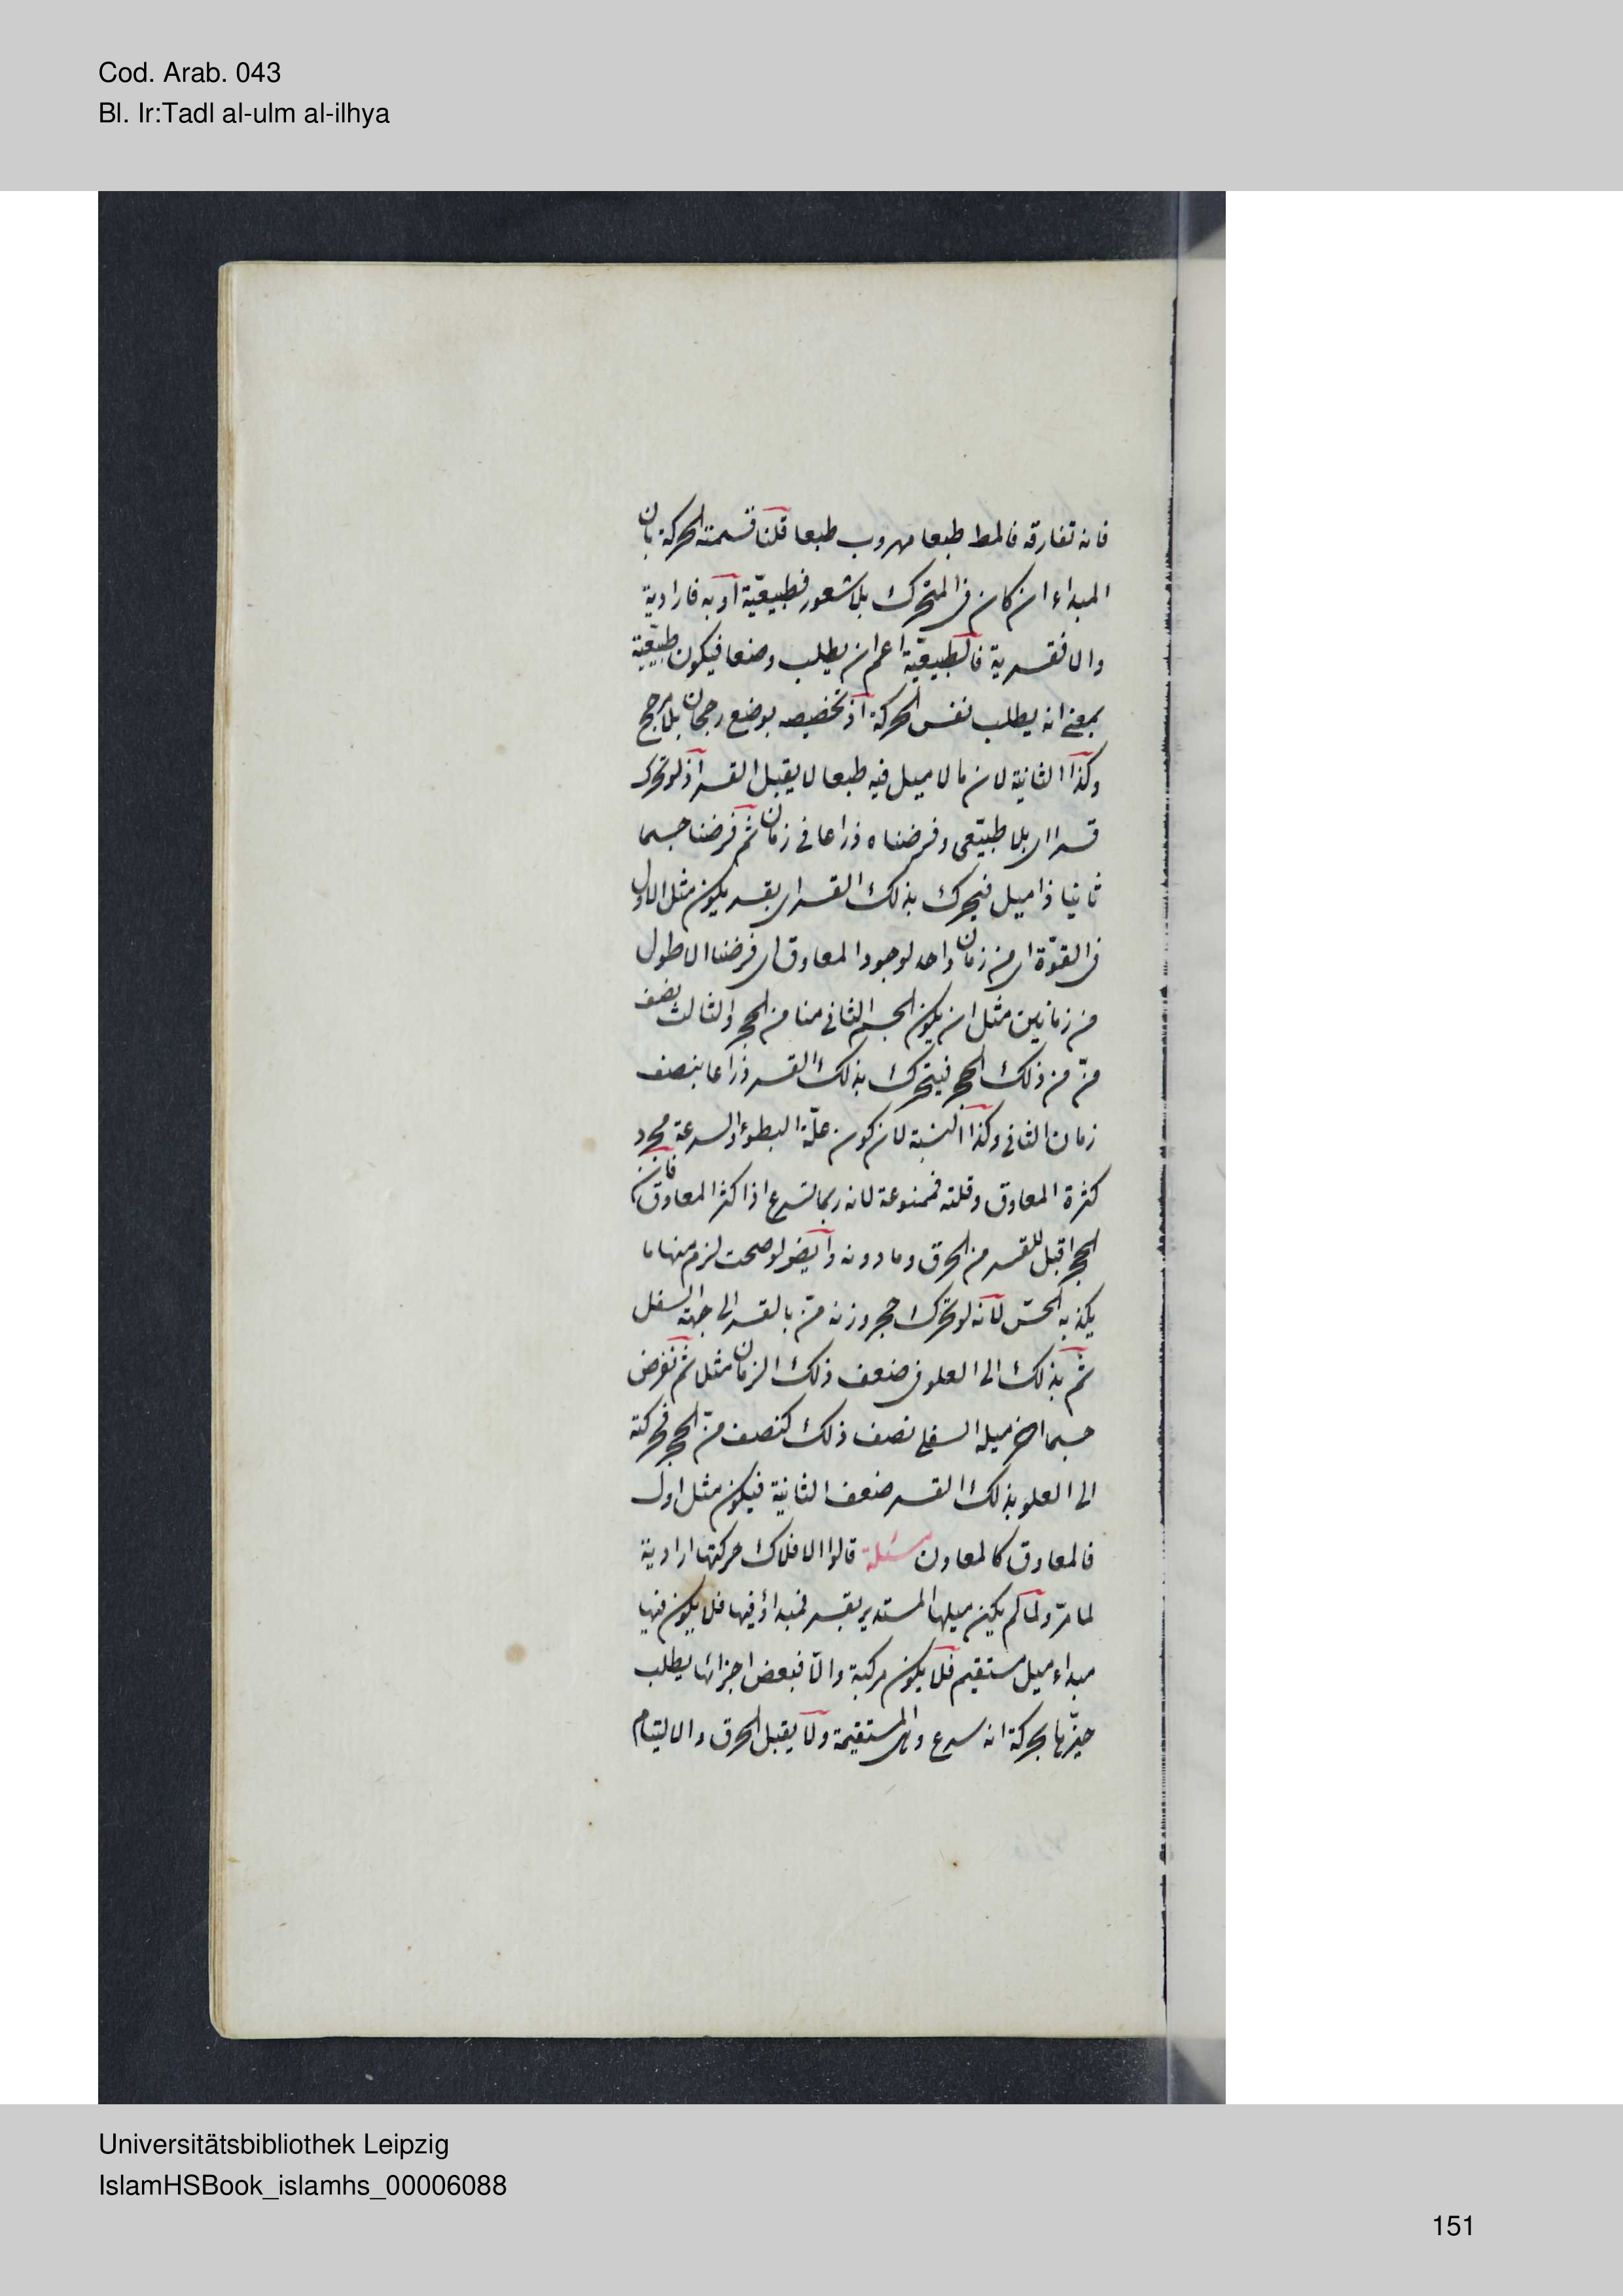 Cod. Arab. 043
Bl. Ir:Tadl al-ulm al-ilhya
فانه تفارقه فالمط طبعا مهروب طبعا قلنا قسمته الحركة بان
المبداء ان كان فى المتحرك بلا شعور فطبيعيّة او به فارادية
والا فقسرية فالطبيعيّة اعم ان يطلب وضعا فيكون طبيعيّة
بمعنى انه يطلب نفس الحركة اذ تخصيصه بوضع رجحان بلا مرجح
وكذا الثانية لان ما لا ميل فيه طبعا لا يقبل القسر اذ لو تحرك
قسرا اى بلا طبيعى وفرضناه ذراعا فى زمان ثم فرضنا جسما
ثانيا ذا ميل فيحرك بذلك القسر اى بقسر يكون مثل الاول
فى القوّة اى من زمان واحد لوجود المعاوق اى فرضنا الاطول
من زمانين مثل ان يكون الجسم الثانى منا من الحجر والثالث نصف
منّ من ذلك الحجر فيتحرك بذلك القسر ذراعا بنصف
زمان الثانى وكذا النسبة لان كون علّة البطوء والسرعة مجرد
كثرة المعاوق وقلته فممنوعة لانه ربما تسرع اذا كثر المعاوق فان
الحجر اقبل للقسر من الخرق وما دونه وايضا لو صحت لزم منها ما
يكذبه الحسّ لانه لو تحرك حجر وزنه منّ بالقسر الى جهة السفل
ثم بذلك الى العلو فى ضعف ذلك الزمان مثل ثم نفرض
جسما اخر ميله السفلى نصف ذلك كنصف منّ الحجر فحركته
الى العلو بذلك القسر ضعف الثانية فيكون مثل اول
فالمعاوق كالمعاون مسئلة قالوا الافلاك حركتها ارادية
لما مرّ ولما لم يكن ميلها المستدير بقسر فمبداؤ فيها فلا يكون فيها
مبداء ميل مستقيم فلا يكون مركبة والّا فبعض اجزائها يطلب
حيّزها بحركة انه سرع وهى المستقيمة ولا يقبل الخرق والالتيام
Universitätsbibliothek Leipzig
IslamHSBook_islamhs_00006088
151